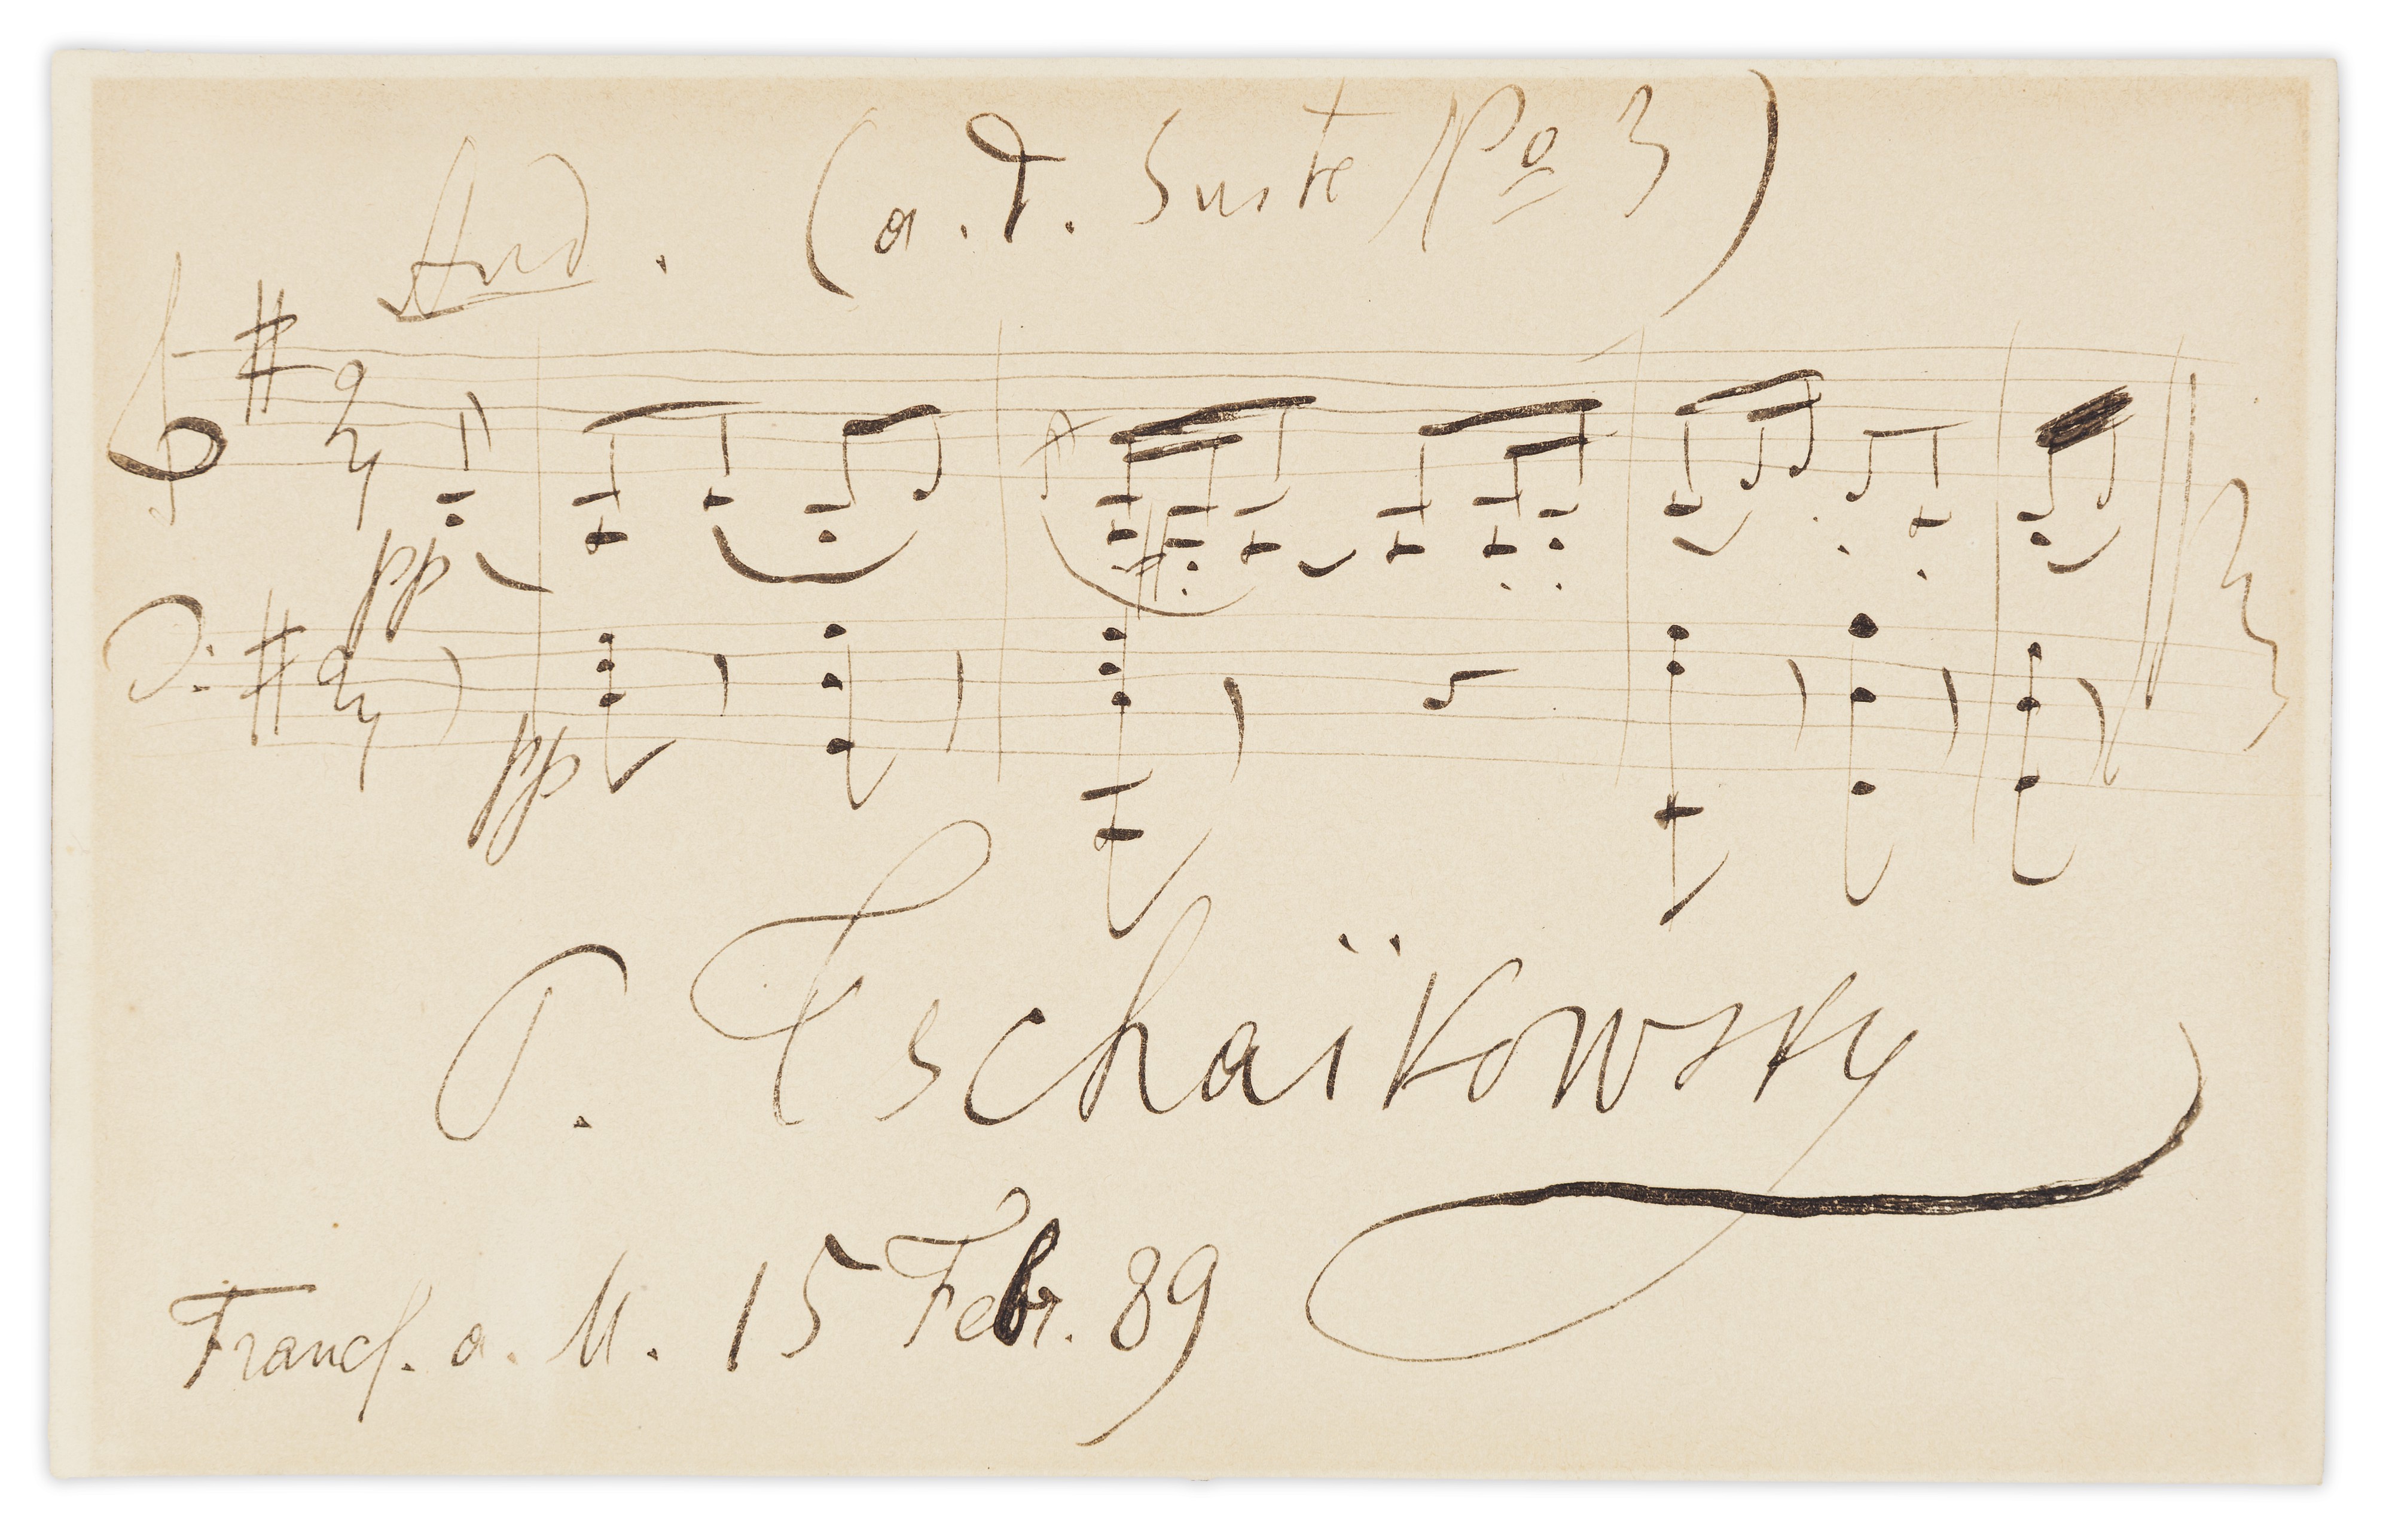 And. (a. d. Suite No 3)
pp
pp
P. Tschaïkowsky
Francf. a. M. 15 Febr. 89